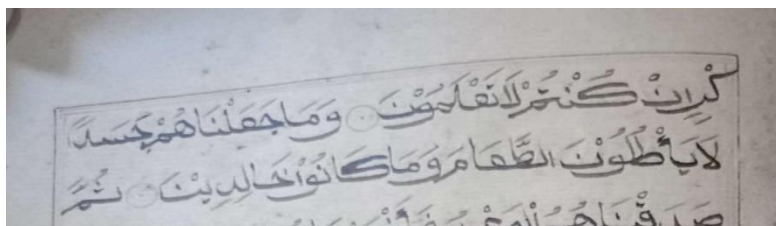 كْرِ إِنْ كُنْتُمْ لَا تَعْلَمُوْنَ وَمَا جَعَلْنَاهُمْ جَسَدًا
لَا يَأْكُلُوْنَ الطَّعَامَ وَمَا كَانُوْا خَالِدِيْنَ ثُمَّ
صَدَقْنَاهُمُ الْوَعْدَ